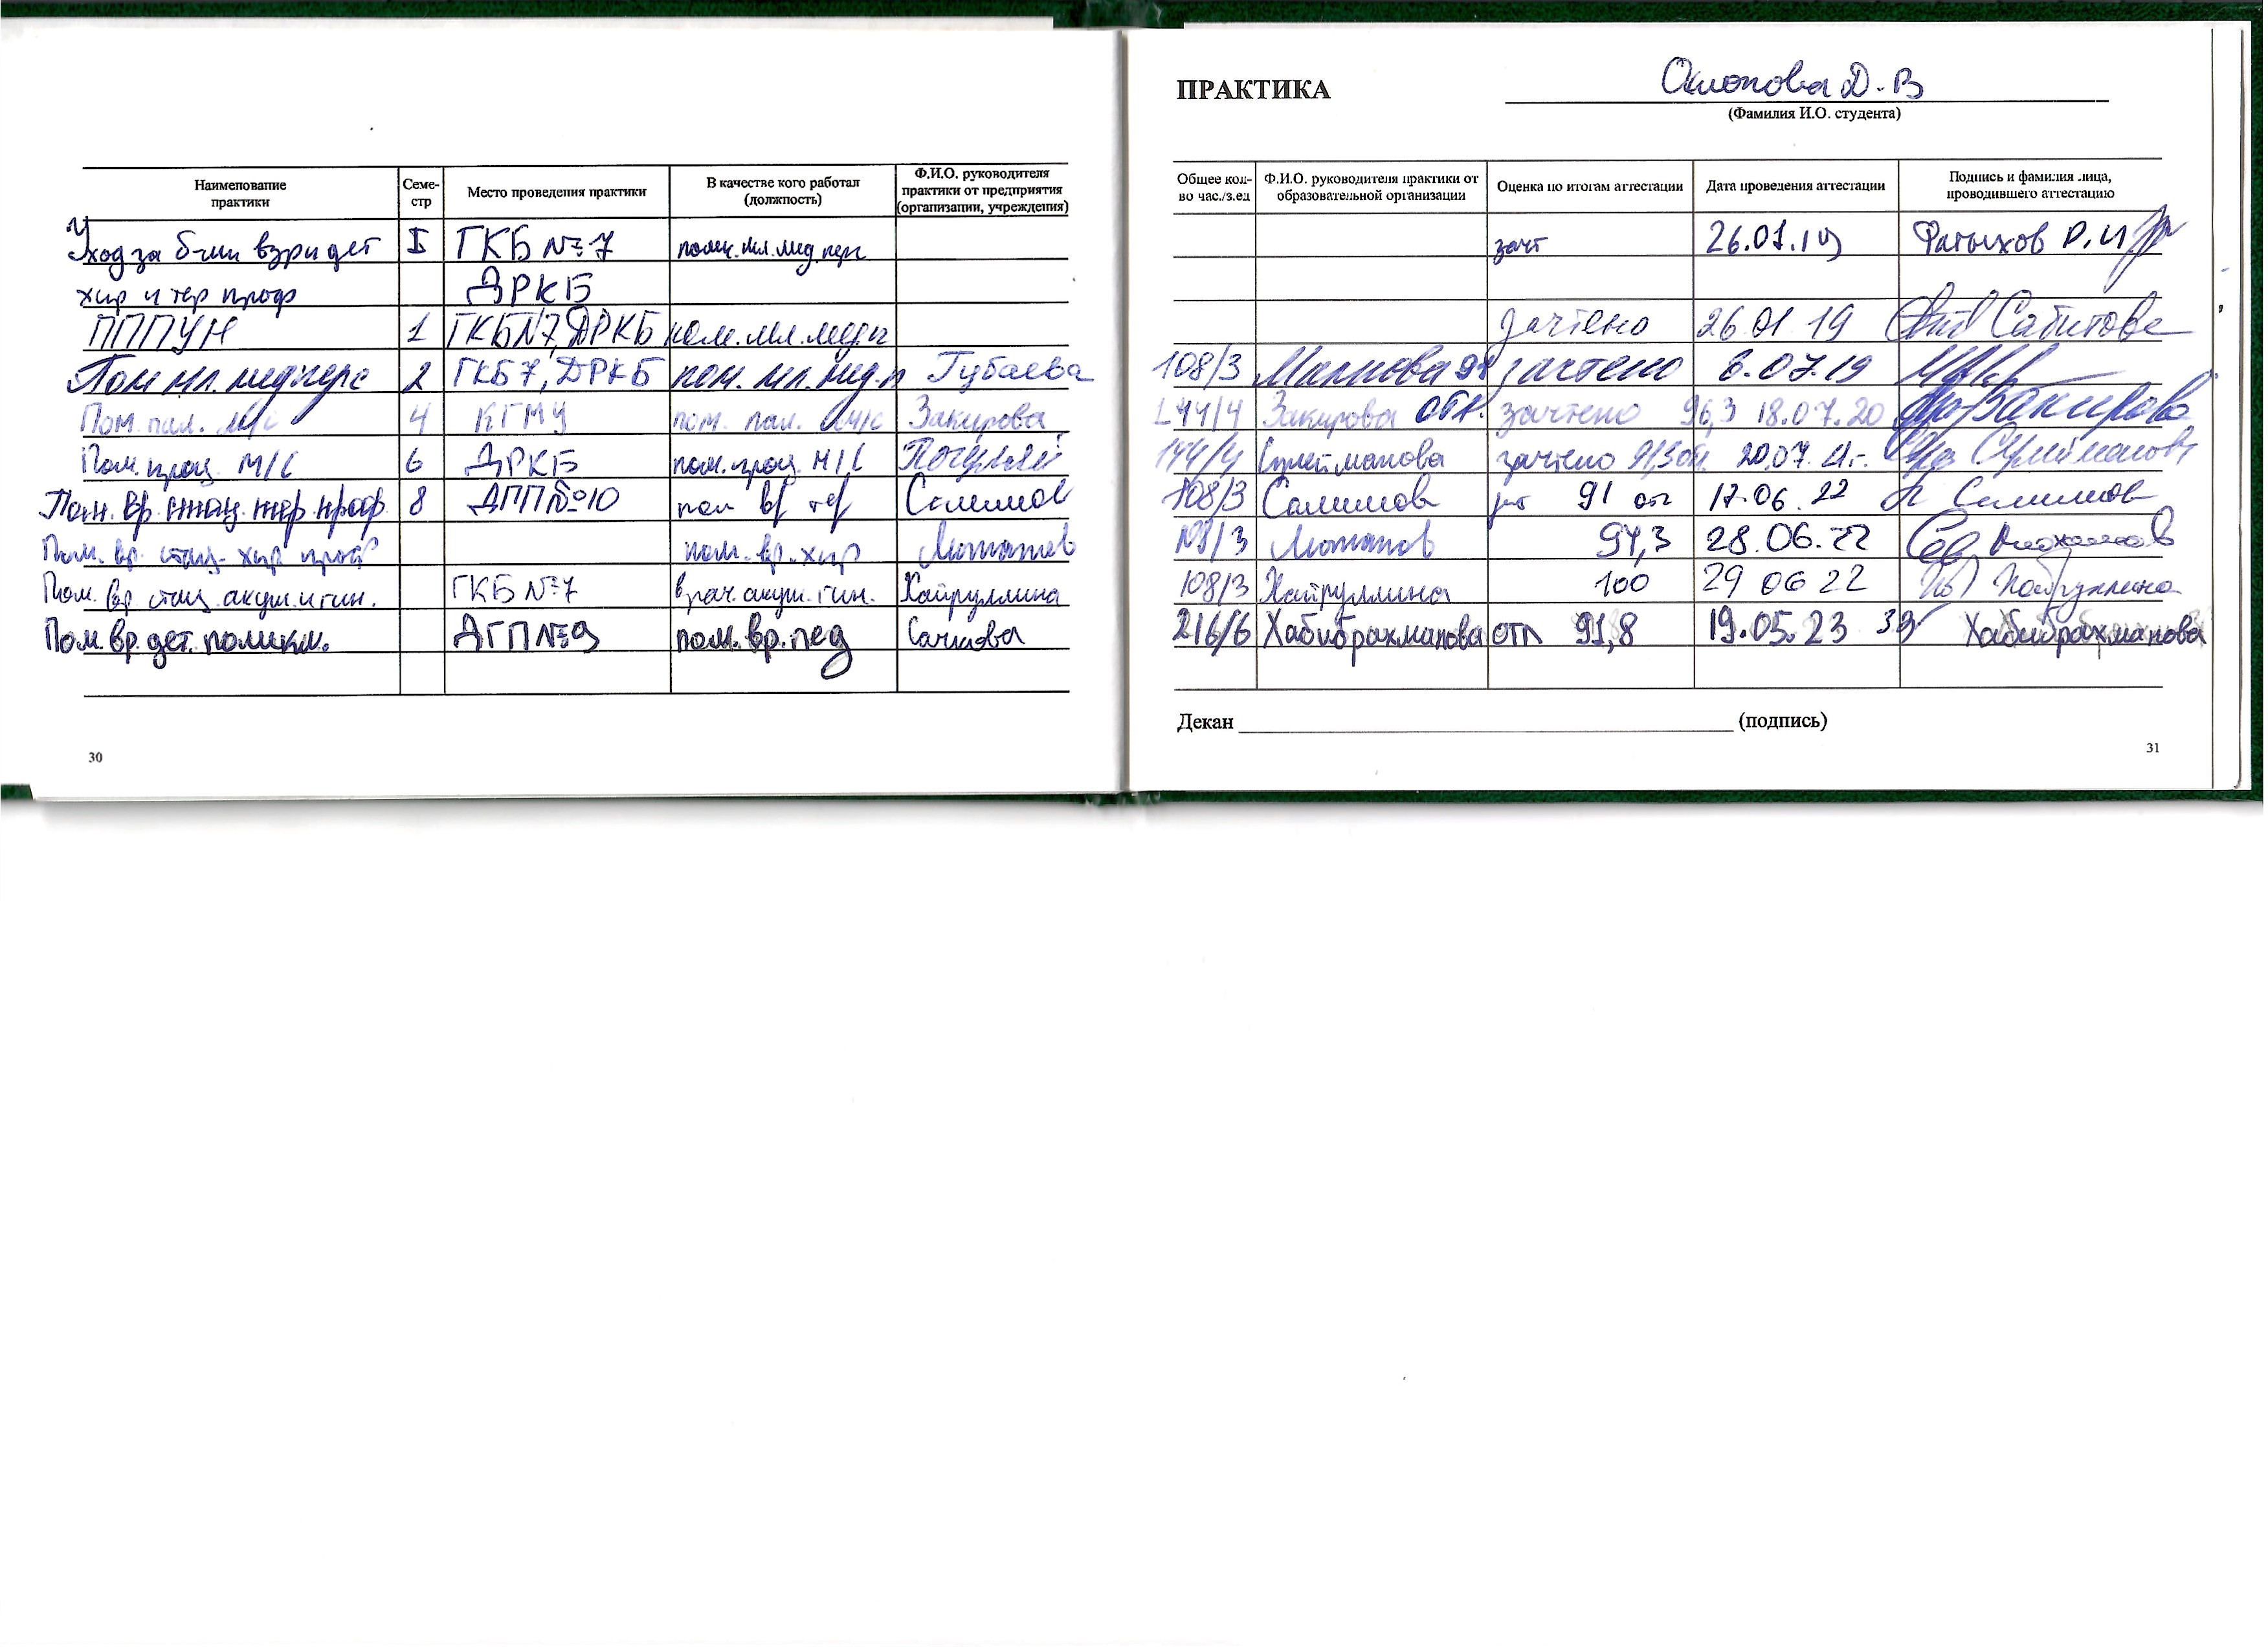 ПРАКТИКА
Д. В
(Фамилия И.О. студента)
Наименование практики Семе-стр Место проведения практики В качестве кого работал (должность) Ф.И.О. руководителя практики от предприятия (организации, учреждения)
Общее кол-во час./з.ед Ф.И.О. руководителя практики от образовательной организации Оценка по итогам аттестации Дата проведения аттестации Подпись и фамилия лица, проводившего аттестацию
Уход за б-ми взр и дет I ГКБ №7 пом. мл. мед. перс зачт 26.01.19 Фатыхов Р.И
хир и тер проф ДРКБ
ПППУН 1 ГКБ N7, ДРКБ пом. мл. медп зачтено 26 01 19 Сабитова
Пом мл. медперс 2 ГКБ 7, ДРКБ пом. мл. мед. п Губаева 108/3 зачтено 6.07.19
Пом. пал. м/с 4 КГМУ пом. пал. м/с Закирова 144/4 Закирова отл. зачтено 96,3 18.07.20 Закирова
Пом. проц. М/С 6 ДРКБ пом. проц. М/С 144/4 Сулейманова зачтено 20.07.21г. Сулейманова
Пом. вр. стац. тер. проф. 8 ДГП №10 пом вр тер Салимов 108/3 Салимов 91 отл 17.06.22 Салимов
Пом. вр. стац. хир проф пом. вр. хир 108/3 28.06.22
Пом. вр стац. акуш. и гин. ГКБ №7 врач. акуш. гин. Хайруллина 108/3 Хайруллина 100 29 06 22 Хайруллина
Пом. вр. дет. поликл. ДГП №9 пом. вр. пед Сачкова 216/6 Хабибрахманова отл 91,8 19.05.23 Хабибрахманова
Декан (подпись)
30
31